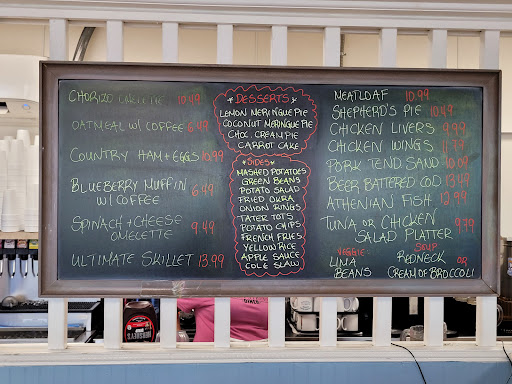 CHORIZO OMELETTE 10.49
OATMEAL W/ COFFEE 6.49
COUNTRY HAM + EGGS 10.99
BLUEBERRY MUFFIN
W/ COFFEE 6.49
SPINACH + CHEESE
OMELETTE 9.49
ULTIMATE SKILLET 13.99
DESSERTS
LEMON MERINGUE PIE
COCONUT MERINGUE PIE
CHOC. CREAM PIE
CARROT CAKE
SIDES
MASHED POTATOES
GREEN BEANS
POTATO SALAD
FRIED OKRA
ONION RINGS
TATER TOTS
POTATO CHIPS
FRENCH FRIES
YELLOW RICE
APPLE SAUCE
COLE SLAW
MEATLOAF 10.99
SHEPHERD'S PIE 10.49
CHICKEN LIVERS 9.99
CHICKEN WINGS
PORK TEND. SAND 10.09
BEER BATTERED COD 13.49
ATHENIAN FISH 12.99
TUNA OR CHICKEN 9.79
SALAD PLATTER
VEGGIE:
LIMA
BEANS
SOUP
REDNECK OR
CREAM OF BROCCOLI
HERSHEY'S